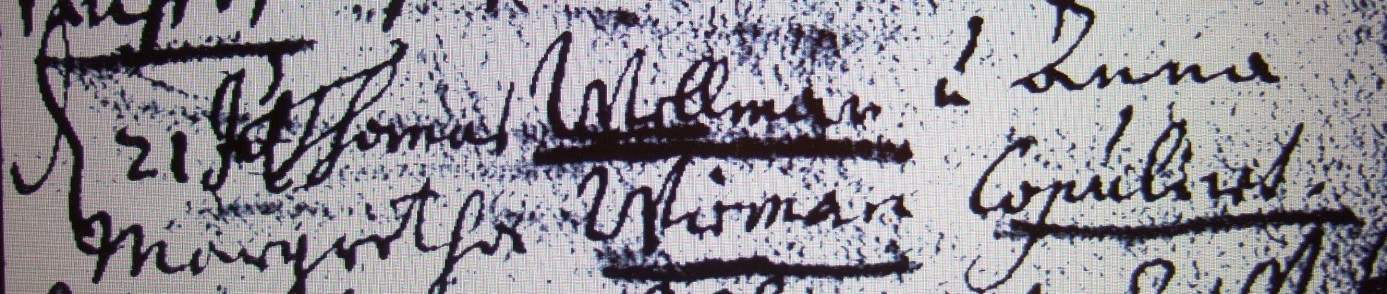 21 Thomas Wollman u Anna
Margretha Wirman Copulirt.